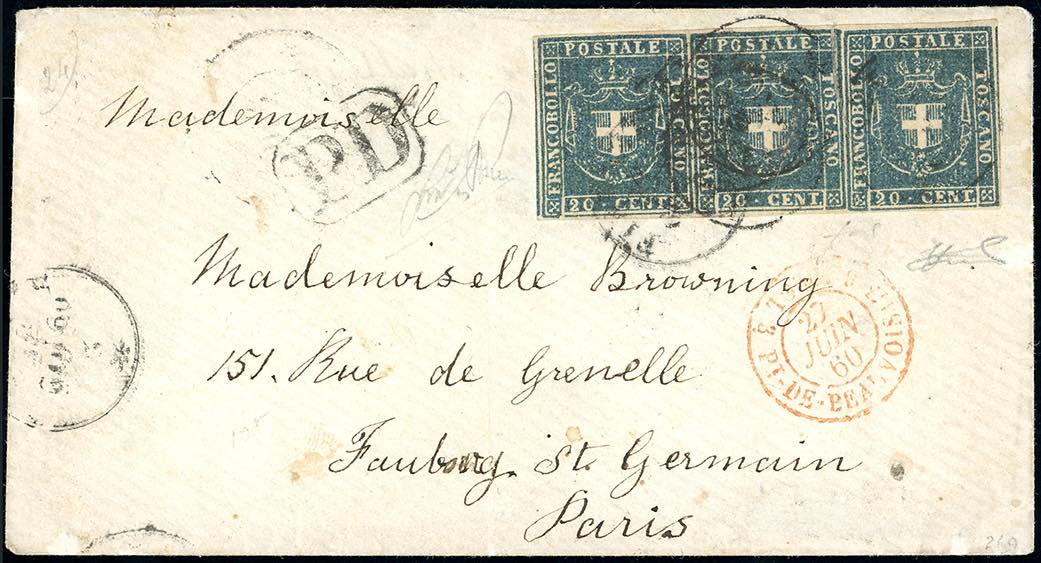 Mademoiselle
PD
POSTALE POSTALE POSTALE
FRANCOBOLLO TOSCANO FRANCOBOLLO TOSCANO FRANCOBOLLO TOSCANO
20 CENT 20 CENT 20 CENT
Mademoiselle Browning
151. Rue de Grenelle
Faubourg. St. Germain
Paris
27
JUIN
60
PT-DE-BEAU
GIU
60
24